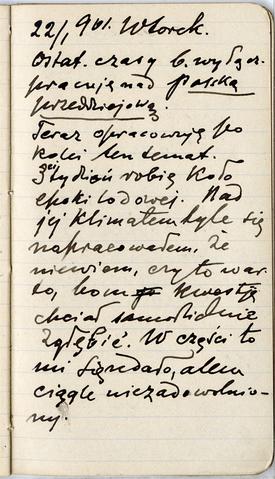 22/I 901. Wtorek.
Ostat. czasy b. wytęż.
pracuję nad Polską
przeddziejową.
Teraz opracowuję po
kolei ten temat.
3ci tydzień robię koło
epoki lodowej. Nad
jej klimatem tyle się
napracowałem, że
niewiem, czy to war-
to, bom kwestję
chciał samodzielnie
zgłębić. W części to
mi się udało, alem
ciągle niezadowolnio-
ny.